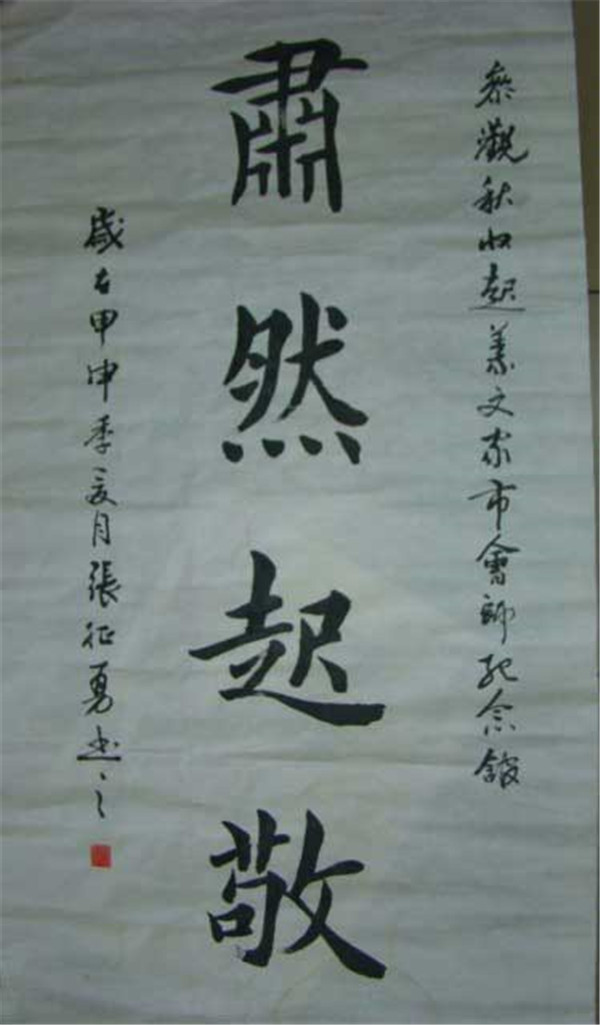 參觀秋收起義文家市會師紀念館
肅然起敬
歲在甲申季夏月張征勇書之